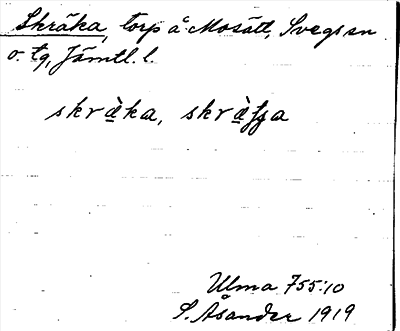 Skräka, torp å Mosätt, Svegs sn
o. tg, Jämtl. l.
skræ̀ka, skræ̀ʃʃa
Ulma 755:10
S. Åsander 1919